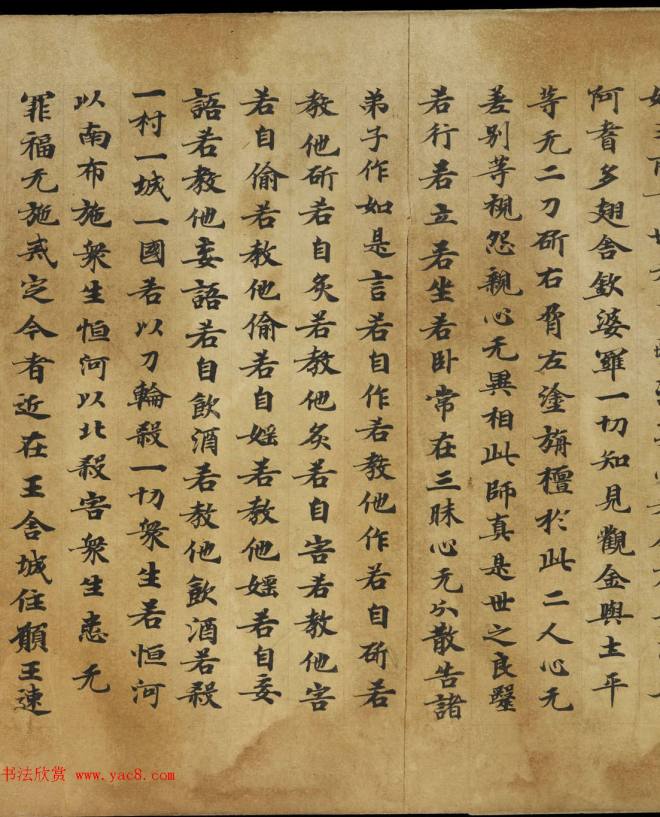 阿耆多翅舍欽婆罪一切知見觀金與土平
等无二刀斫右脅左塗旃檀於此二人心无
差別等視怨親心无異相此師真是世之良毉
若行若立若坐若卧常在三昧心无分散告諸
弟子作如是言若自作若教他作若自斫若
教他斫若自炙若教他炙若自害若教他害
若自偷若教他偷若自婬若教他婬若自妄
語若教他妄語若自飲酒若教他飲酒若殺
一村一城一國若以刀輪殺一切衆生若恒河
以南布施衆生恒河以北殺害衆生悉无
罪福无施戒定今者近在王舍城住願王速
书法欣赏 www.yac8.com